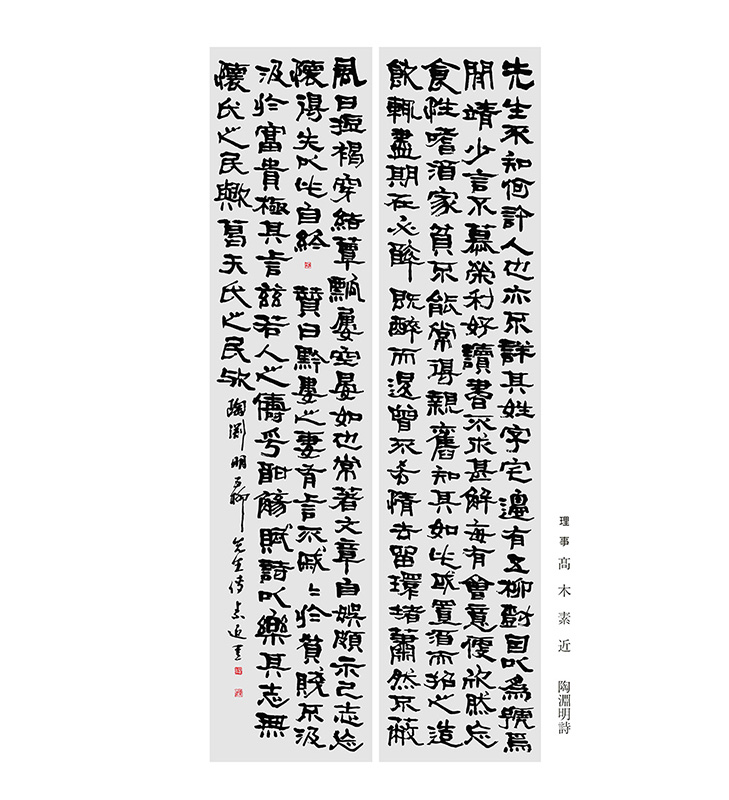 理事 髙木素近 陶淵明詩
先生不知何許人也亦不詳其姓字宅邊有五柳樹因以為號焉
閒靖少言不慕榮利好讀書不求甚解每有會意便欣然忘
食性嗜酒家貧不能常得親舊知其如此或置酒而招之造
飲輒盡期在必醉既醉而退曾不吝情去留環堵蕭然不蔽
風日短褐穿結簞瓢屢空晏如也常著文章自娛頗示己志忘
懷得失以此自終 贊曰黔婁之妻有言不戚々於貧賤不汲
汲於富貴極其言茲若人之儔乎酣觴賦詩以樂其志無
懷氏之民歟葛天氏之民歟 陶淵明五柳先生傳 素近書